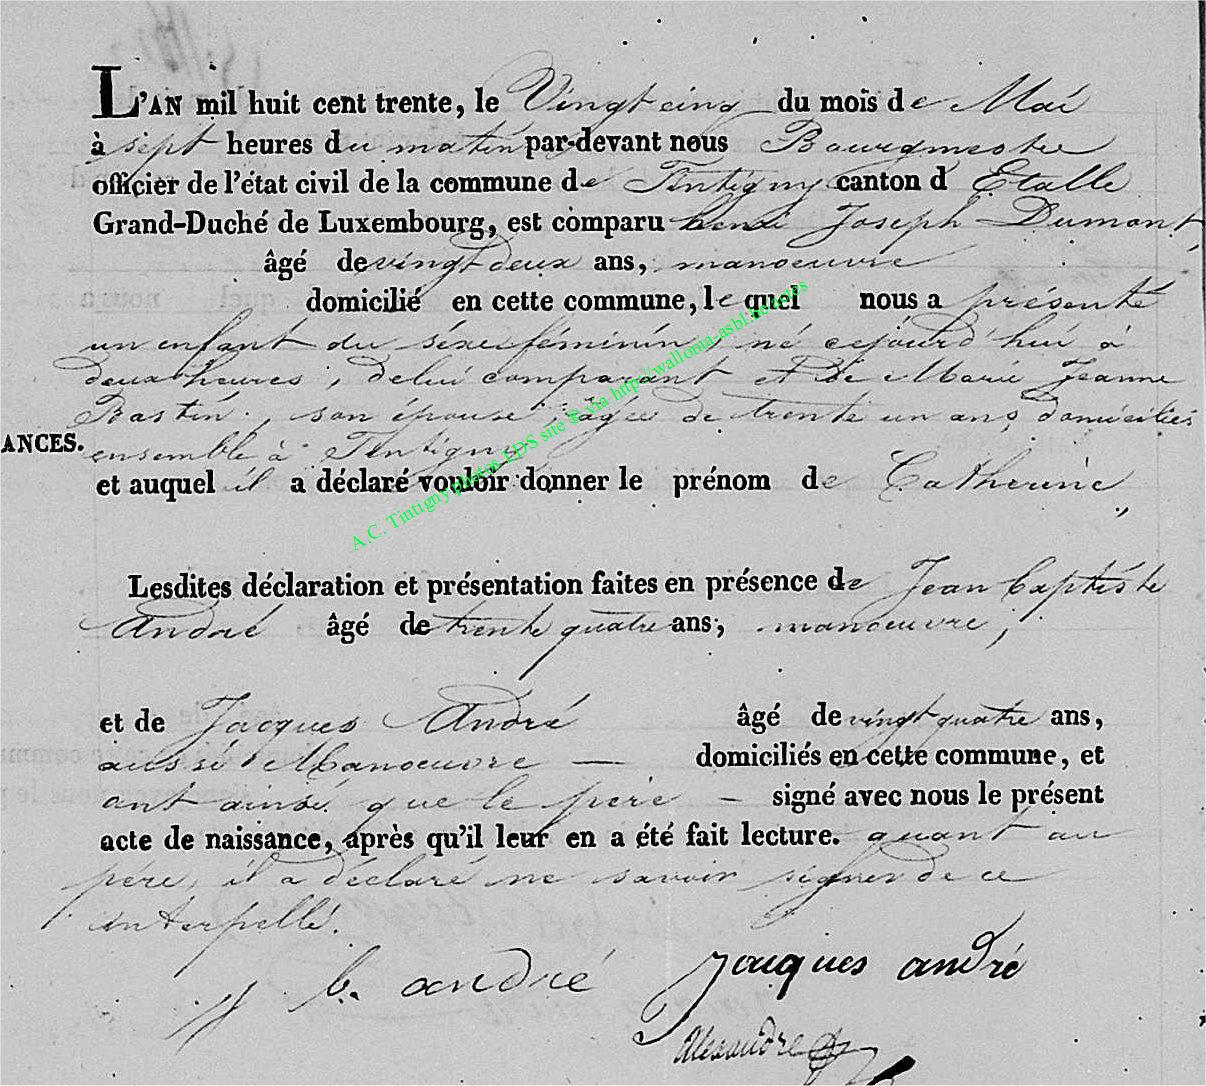 L'AN mil huit cent trente, le Vingt cinq du mois de Mai
à sept heures du matin par-devant nous Bourgmestre
officier de l'état civil de la commune de Tintigny canton d'Etalle
Grand-Duché de Luxembourg, est comparu henri Joseph Dumont,
âgé de vingt deux ans, manoeuvre
domicilié en cette commune, lequel nous a présenté
un enfant du séxe féminin, né cejourd'hui à
deux heures, de lui comparant et de Marie Jeanne
Bastin, son épouse, âgée de trente un ans, domiciliés
ANCES. ensemble à Tintigny
et auquel il a déclaré vouloir donner le prénom de Catherine,
A.C. Tintigny photos EDS site © via http://wallonia-asbl.be/actes
Lesdites déclaration et présentation faites en présence de Jean baptiste
André âgé de trente quatre ans, manoeuvre,
et de Jacques André âgé de vingt quatre ans,
aussi Manoeuvre — domiciliés en cette commune, et
ont ainsi que le père — signé avec nous le présent
acte de naissance, après qu'il leur en a été fait lecture. quant au
père, il a déclaré ne savoir signer de ce
interpellé.
b. andré Jacques andré
Alexandre